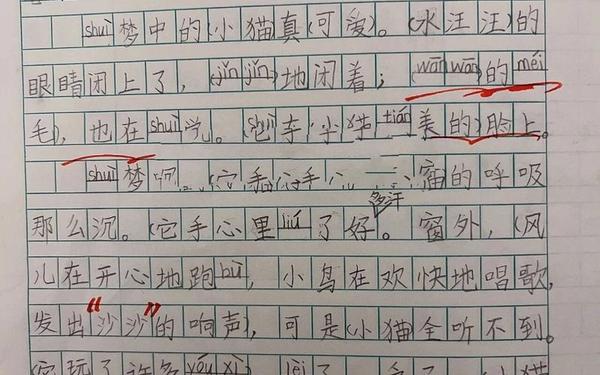 shuì梦中的(小猫真(可爱)。(水汪汪)的
眼睛闭上了,(jǐn jǐn)地闭着;(wān wān)的méi
毛),也在shuì tián美的)脸上。
shuì梦 的呼吸
那么沉。(它手心里liú了好多汗。窗外,(风
儿在开心地跑bù,小鸟在欢快地唱歌,
发出“沙沙”的响声),可是(小猫全听不到。
玩了许多yóu xì